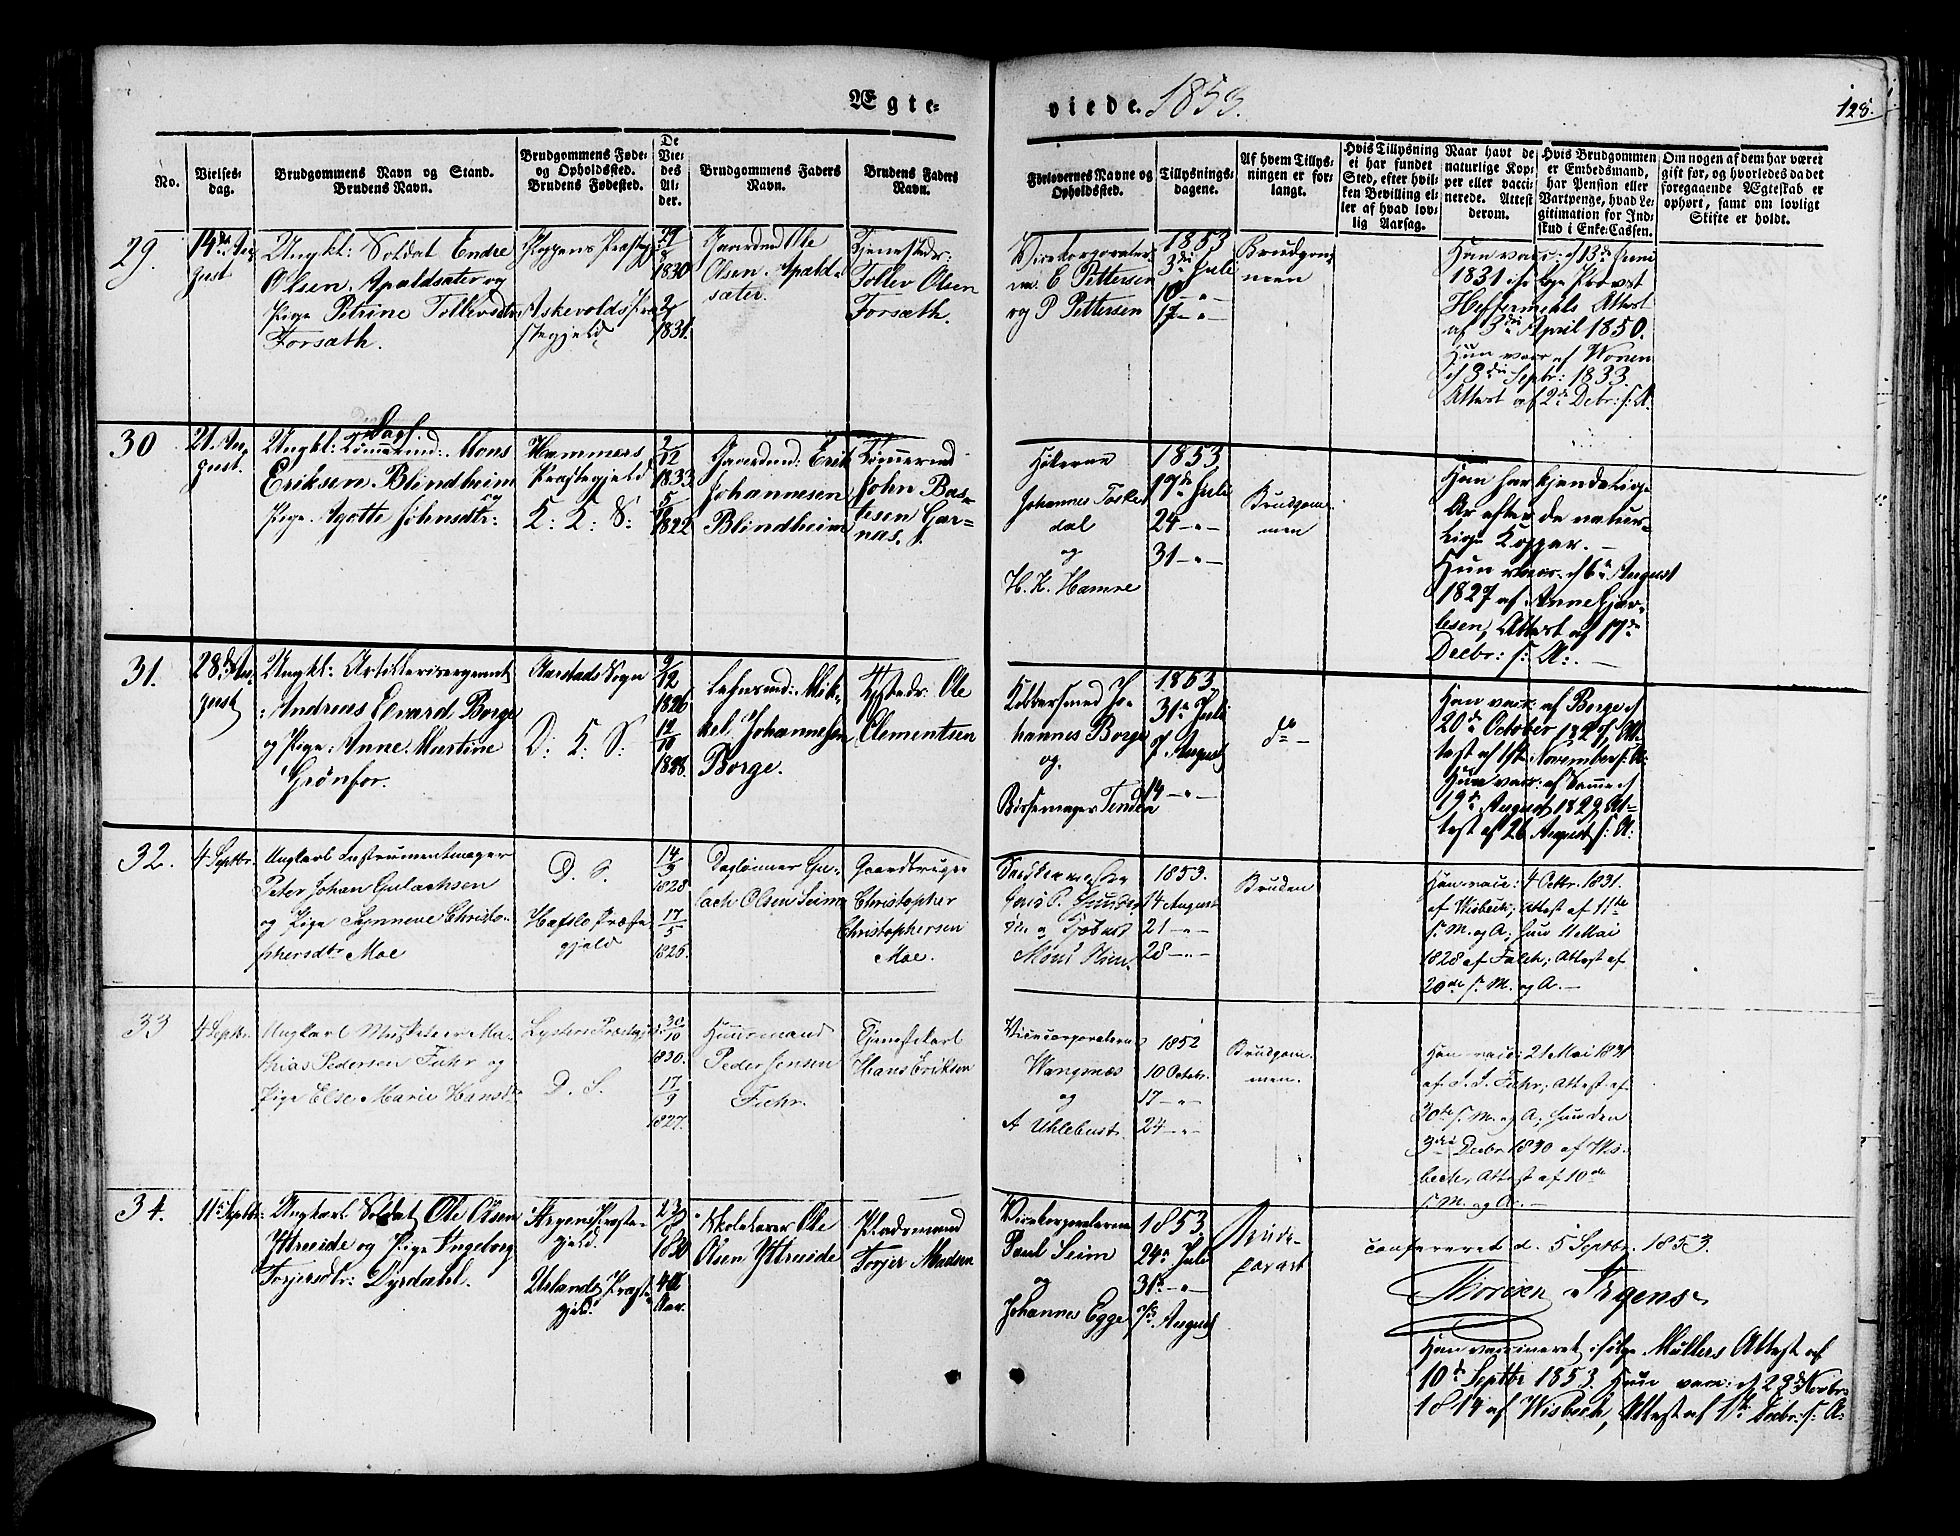 Ægte-
viede. 1853.
128.
No.
Vielses-
dag.
Brudgommens Navn og Stand.
Brudens Navn.
Brudgommens Føde-
og Opholdssted.
Brudens Fødested.
De
Vie-
des
Al-
der.
Brudgommens Faders
Navn.
Brudens Faders
Navn.
Forlovernes Navne og
Opholdssted.
Tillysnings-
dagene.
Af hvem Tillys-
ningen er for-
langt.
Hvis Tillysning
ei har fundet
Sted, efter hvil-
ken Bevilling el-
ler af hvad lov-
lig Aarsag.
Naar havt de
naturlige Kop-
per eller vacci-
nerede. Attest
derom.
Hvis Brudgommen
er Embedsmand,
har Pension eller
Vartpenge, hvad Le-
gitimation for Ind-
skud i Enke-Cassen.
Om nogen af dem har været
gift før, og hvorledes da det
foregaaende Ægteskab er
ophørt, samt om lovligt
Skifte er holdt.
29.
14de Au-
gust
Ungkl: Soldat Endre
Olsen Apaldsæter og
Pige Petrine Tollevsdtr
Forsæth.
Askevolds Præ-
stegjeld
1830
1831.
Gaardmd Ole
Olsen Apald-
sæter.
Tjenestedr:
Tollev Olsen
Forsæth.
E. Pettersen
og P Pettersen
1853
3die Juli
10 — „ —
17 — „ —
Brudgom-
men
Han vacc: d 13de Juni
1831 ifølge Provst
Heffermehls Attest
af 3die April 1850.
Hun vacc af Wonen
d 3die Septbr: 1833.
Attest af 2de Debr: s: A.
30
21. Au-
gust.
Ungkl: Mons
Eriksen Blindheim
og
Pige Agotte Johnsdtr:
Hammers
Præstegjeld
K: K: S:
2/12
1833.
1822
Gaardmd: Erik
Johannesen
Blindheim
Tømmermd
John Bas-
tesen Gar-
nas.
Johannes Toske
dal
og
H. K. Hamre
1853
17de Juli
24 — „ —
31 — „ —
Brudgom-
men
Han har kjendelige
Ar efter de natur-
lige Kopper. —
Hun vacc. d 6te August
1827 af Anne Gjer-
lesen, Attest af 17de
Decbr: s: A: —
31.
28de Au-
gust
Ungkl: Artillerisergeant
Andreas Edvard Borge
og Pige Anne Martine
Grønfor.
Aarstad Sogn
D: K: S:
9/12
1826
12/10
1828.
Mik-
kel Johannesen
Borge.
Ole
Clementsen
Kobbersmed Jo-
hannes Borge
og
Bøssemager Tenden
1853
31te Juli
7 August
14 — „ —
do —
Han vacc. af Borge d
20de October 1827 At-
test af 1ste November s: A:
Hun vacc: af Samme d
19de August 1829 At-
test af 26 August s: A:
32.
4 Septbr.
Ungkarl Instrumentmager
Peter Johan Gulachsen
og Pige Synneve Christo-
phersdtr Moe
D. S.
Hafslo Præste-
gjeld
14/3
1828
17/5
1825.
Daglønner Gu-
lach Olsen Seim
Gaardbruger
Christopher
Christophersen
Moe.
1853.
14 August
21 — „ —
28 — „ —
Bruden
Han vacc: 4 Octbr. 1831.
af Wisbech; Attest af 11te
s. M. og A; hun 11 Mai
1828 af Falch; Attest af
20de s. M. og A. —
33
4 Septbr.
Ungkarl Musketeer Ma-
thias Pedersen Fuhr og
Pige Else Marie Hansdtr
Lysters Præstegjeld
D. S.
30/10
1830.
17/9
1827.
Huusmand
Peder Jensen
Fuhr.
Tjenestekarl
Hans Eriksen
Vicecorporalerne
Wangsnæs
og
A Uhlebust.
1852
10 Octobr.
17 — „ —
24 — „ —
Brudgom-
men.
Han vacc: 21 Mai 1831
af J. J. Fuhr; Attest af
30te s. M. og A; hun den
3die Decbr 1830 af Wis-
bech, Attest af 10de
s. M. og A. —
34.
11te Septbr:
Ungkarl Soldat Ole Olsen
Yttreeide og Pige Ingeborg
Torjersdtr: Dyrdahl.
Urlands Præste-
gjeld.
40
Aar.
Skolelærer Ole
Olsen Yttreeide
Pladsmand
Torjer Madsen
Vicekorporalerne
Paul Seim
og
Johannes Egge
1853
24de Juli
31te — „ —
7de August
Brude-
parret
confereret d. 5 Septbr. 1853.
Han vaccineret ifølge Müllers Attest af
10de Septbr 1853. Hun vacc: d 22de Novbr
1814 af Wisbech, Attest af 1ste Decbr: s: A: